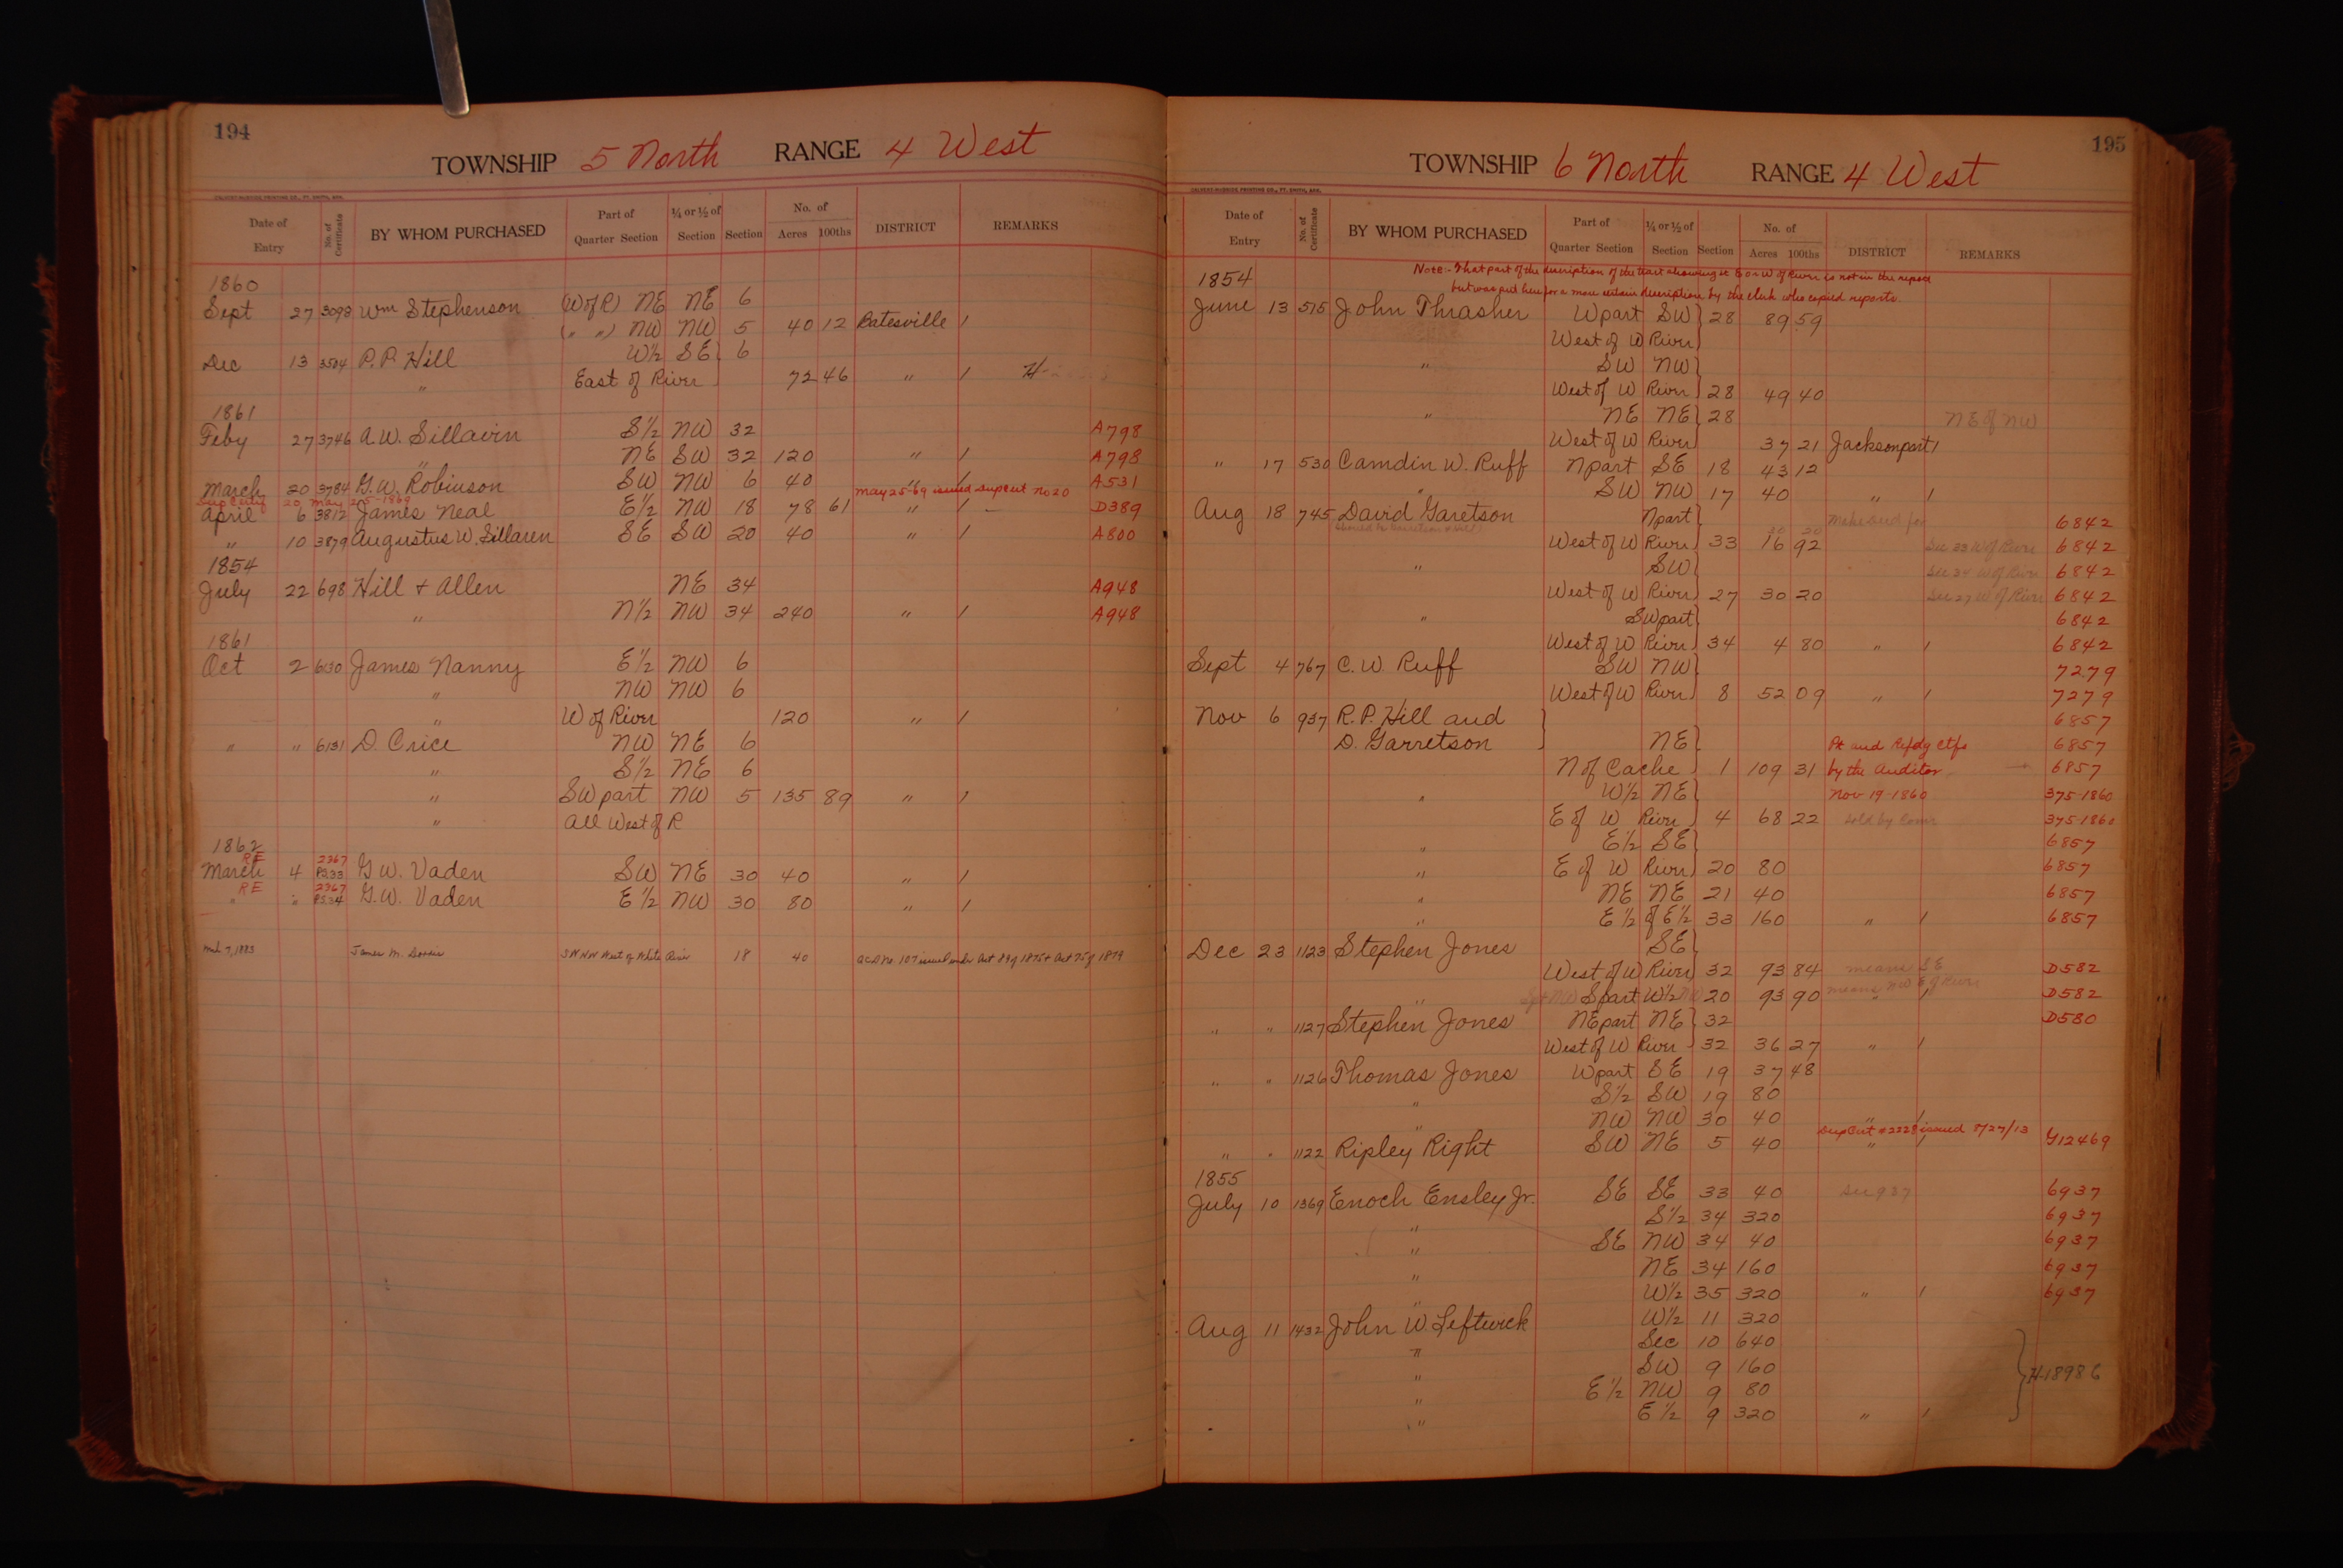 194
TOWNSHIP 5 North RANGE 4 West
CALVERT-McBRIDE PRINTING CO., FT. SMITH, ARK.
Date of Entry No. of Certificate BY WHOM PURCHASED Part of Quarter Section ¼ or ½ of Section Section No. of Acres 100ths DISTRICT REMARKS
1860
Sept 27 3098 Wm Stephenson (W of R) NE NE 6
(" ") NW NW 5 40 12 Batesville /
Dec 13 3504 P.P. Hill W½ SE 6
" East of River 72 46 " / H
1861
Feby 27 3746 A.W. Sillavin S½ NW 32 A798
" NE SW 32 120 " / A798
March 20 3784 G.W. Robinson SW NW 6 40 " / A531
20 May 25-1869 May 25-69 issued Dup Cert No 20
April 6 3812 James Neal E½ NW 18 78 61 " / D389
" 10 3879 Augustus W. Sillaven SE SW 20 40 " / A800
1854
July 22 698 Hill + Allen NE 34 A948
" N½ NW 34 240 " / A948
1861
Oct 2 6130 James Nanny E½ NW 6
" NW NW 6
" W of River 120 " /
" " 6131 D. Crice NW NE 6
" S½ NE 6
" SW part NW 5 135 89 " /
" All West of R
1862
RE 2367
March 4 G.W. Vaden SW NE 30 40 " /
RE 2367
" " G.W. Vaden E½ NW 30 80 " /
Mch 7, 1883 James M. SW NW West of White River 18 40 107 issued under Act 89 of 1875 + Act 75 of 1879
195
TOWNSHIP 6 North RANGE 4 West
CALVERT-McBRIDE PRINTING CO., FT. SMITH, ARK.
Date of Entry No. of Certificate BY WHOM PURCHASED Part of Quarter Section ¼ or ½ of Section Section No. of Acres 100ths DISTRICT REMARKS
Note:- That part of the description of the tract showing it E or W of River is not in the report
1854
but was put here for a more certain description by the clerk who copied reports.
June 13 515 John Thrasher W part SW 28 89 59
West of W River
" SW NW
West of W River 28 49 40
" NE NE 28 NE of NW
West of W River 37 21 Jacksonport /
" 17 530 Camdin W. Ruff N part SE 18 43 12
" SW NW 17 40 " /
Aug 18 745 David Garetson N part 6842
30 20
West of W River 33 16 92 Sec 33 W of River 6842
" SW Sec 34 W of River 6842
West of W River 27 30 20 Sec 27 W of River 6842
" SW part 6842
West of W River 34 4 80 " / 6842
Sept 4 767 C.W. Ruff SW NW 7279
West of W River 8 52 09 " / 7279
Nov 6 937 R.P. Hill and 6857
D. Garretson NE Pt and Refdg Ctfs 6857
N of Cache 1 109 31 by the Auditor 6857
" W½ NE Nov 19-1860 375-1860
E of W River 4 68 22 Sold by Comr 375-1860
" E½ SE 6857
" E of W River 20 80 6857
" NE NE 21 40 6857
" E½ of E½ 33 160 " / 6857
Dec 23 1123 Stephen Jones SE
West of W River 32 93 84 means SE D582
" S part W½ NW 20 93 90 means NW E of River " / D582
" " 1127 Stephen Jones NE part NE 32 D580
West of W River 32 36 27 " /
" " 1126 Thomas Jones W part SE 19 37 48
" S½ SW 19 80
" NW NW 30 40 " /
Dup Cert #2228 issued 8/27/13
" " 1122 Ripley Right SW NE 5 40 " / Y12469
1855
July 10 1369 Enoch Ensley Jr. SE SE 33 40 See 937 6937
" S½ 34 320 6937
" SE NW 34 40 6937
" NE 34 160 6937
" W½ 35 320 " / 6937
Aug 11 1432 John W. Leftwick W½ 11 320
" Sec 10 640
" SW 9 160 H-18986
" E½ NW 9 80
" E½ 9 320 " /